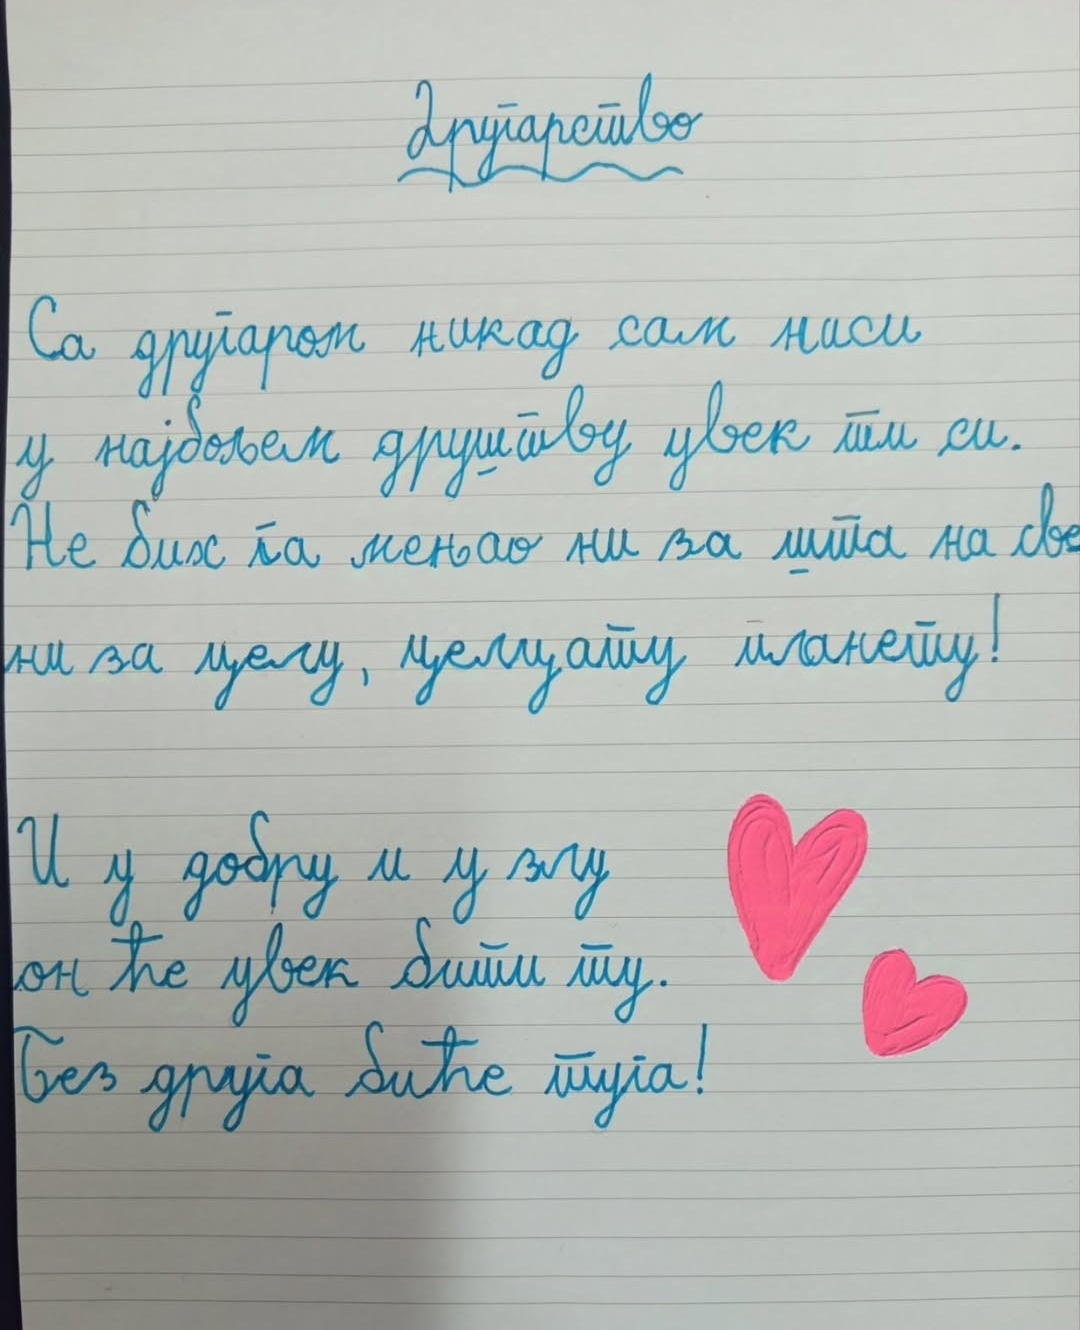 Другарство
Са другаром никад сам ниси
у најбољем друштву увек ти си.
Не бих га мењао ни за шта на све
ни за целу, целцату планету!
И у добру и у злу
он ће увек бити ту.
Без друга биће туга!